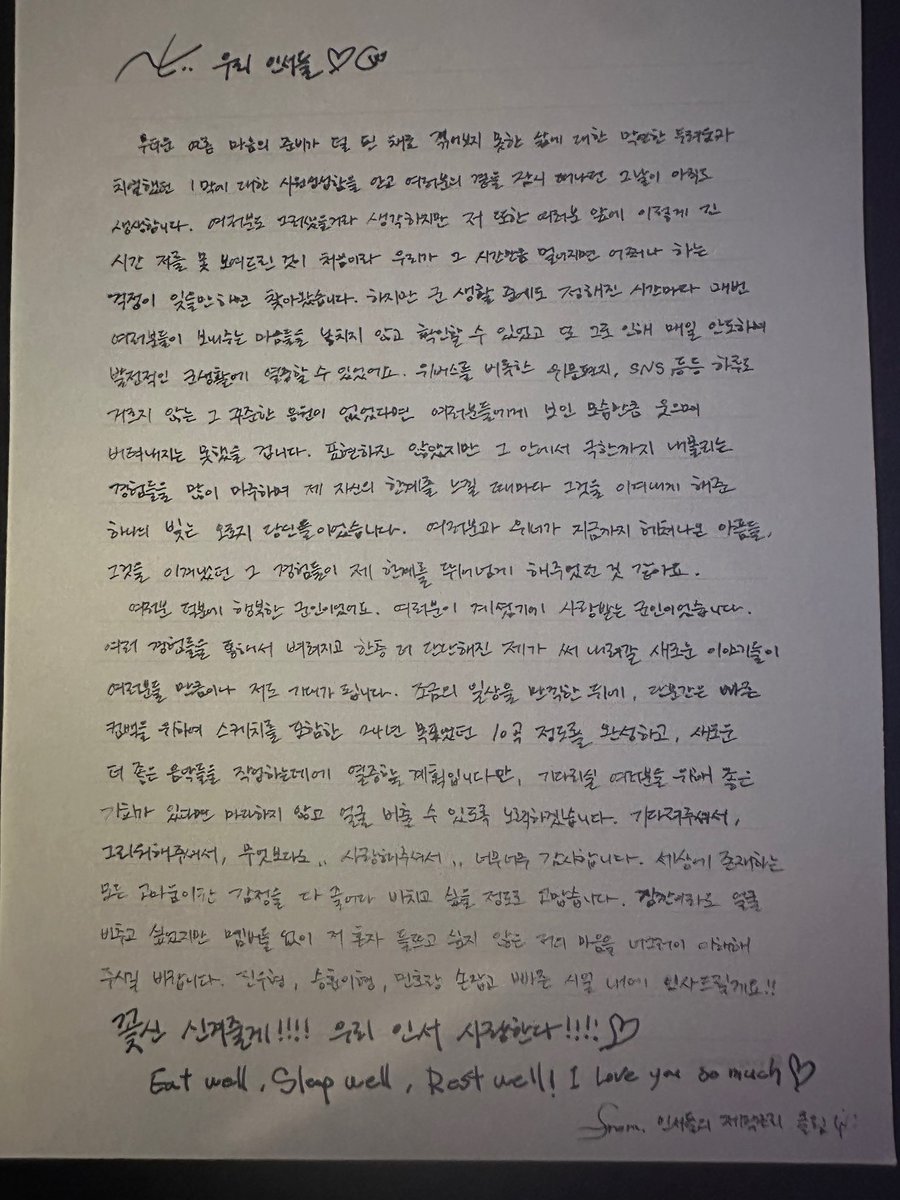 우리 인서들♡
무더운 여름 마음의 준비가 덜 된 채로 겪어보지 못한 삶에 대한 막연한 두려움과
치열했던 1막에 대한 시원섭섭함을 안고 여러분의 곁을 잠시 떠나던 그날이 아직도
생생합니다. 여러분도 그러셨을거라 생각하지만 저 또한 여러분 앞에 이렇게 긴
시간 저를 못 보여드린 것이 처음이라 우리가 그 시간만큼 멀어지면 어쩌나 하는
걱정이 잊을만하면 찾아왔습니다. 하지만 군 생활 중에도 정해진 시간마다 매번
여러분들이 보내주는 마음들을 놓치지 않고 확인할 수 있었고 또 그로 인해 매일 안도하며
발전적인 군생활에 열중할 수 있었어요. 위버스를 비롯한 위문편지, SNS 등등 하루도
거르지 않는 그 꾸준한 응원이 없었다면 여러분들에게 보인 모습만큼 웃으며
버텨내지는 못했을 겁니다. 표현하진 않았지만 그 안에서 극한까지 내몰리는
경험들을 많이 마주하며 제 자신의 한계를 느낄 때마다 그것을 이겨내게 해준
하나의 빛는 오로지 당신들이었습니다. 여러분과 위너가 지금까지 헤쳐나온 아픔들,
그것들 이겨냈던 그 경험들이 제 한계를 뛰어넘게 해주었던 것 같아요.
여러분 덕분에 행복한 군인이었어요. 여러분이 계셨기에 사랑받는 군인이었습니다.
여러 경험들을 통해서 벼려지고 한층 더 단단해진 제가 써 내려갈 새로운 이야기들이
여러분들 만큼이나 저도 기대가 됩니다. 조금의 일상을 만끽한 뒤에, 당분간은 빠른
컴백을 위하여 스케치를 포함한 24년 목표였던 10곡 정도를 완성하고, 새로운
더 좋은 음악들을 작업하는데에 열중할 계획입니다만, 기다리실 여러분을 위해 좋은
기회가 있다면 마다하지 않고 얼굴 비출 수 있도록 노력하겠습니다. 기다려주셔서,
그리워해주셔서, 무엇보다도.. 사랑해주셔서.. 너무너무 감사합니다. 세상에 존재하는
모든 고마움이란 감정을 다 끌어다 바치고 싶을 정도로 고맙습니다. 잠깐이라도 얼굴
비추고 싶었지만 멤버들 없이 저 혼자 들뜨고 싶지 않은 저의 마음을 너그러이 이해해
주시길 바랍니다. 진우형, 승훈이형, 민호랑 손잡고 빠른 시일 내에 인사드릴게요!!
꽃신 신겨줄게!!!! 우리 인서 사랑한다!!!!♡
Eat well, Sleep well, Rest well! I love you so much♡
From. 인서들의